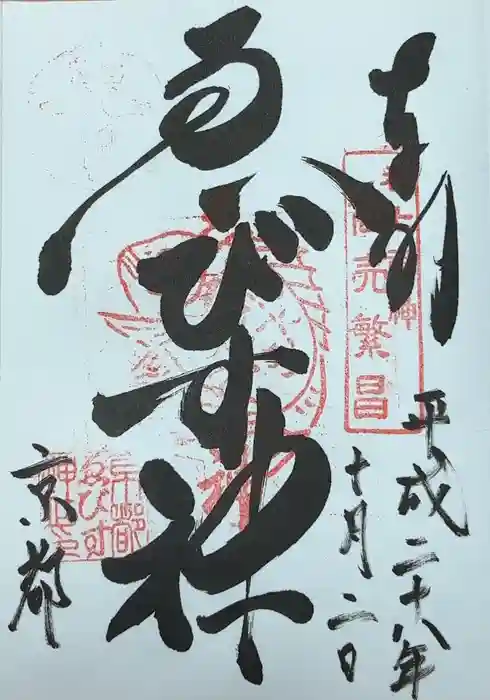 奉拝
商売繁昌
平成二十八年
十月二日
ゑびす神
京都
京都
ゑびす
神社